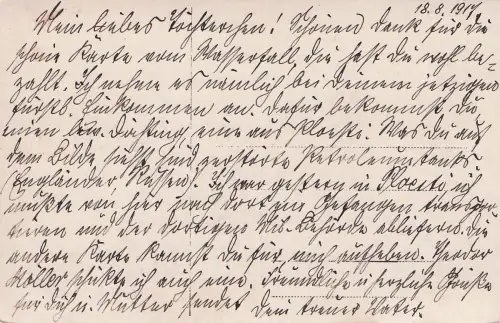 18.8.1917
Mein liebes Töchterchen! Schönen Dank für die
schöne Karte vom Wasserfall, die hast Du wohl be-
zahlt. Ich nehme es nämlich bei Deinem jetzigen
fürstl. Einkommen an. Dafür bekommst Du
einen, eine aus Ploesti. Was Du auf
dem Bilde siehst sind zerstörte Petroleumtanks
(Engländer, Russen). Ich war gestern in Ploesti, ich
mußte von hier nach dort Gefangen transpor-
tieren und der dortigen Mil. Behörde abliefern. Die
andere Karte kannst Du für mich aufheben. Theodor
Höller schickte ich auch eine. Freundliche u herzliche Grüße
für Dich u. Mutter sendet Dein treuer Vater.